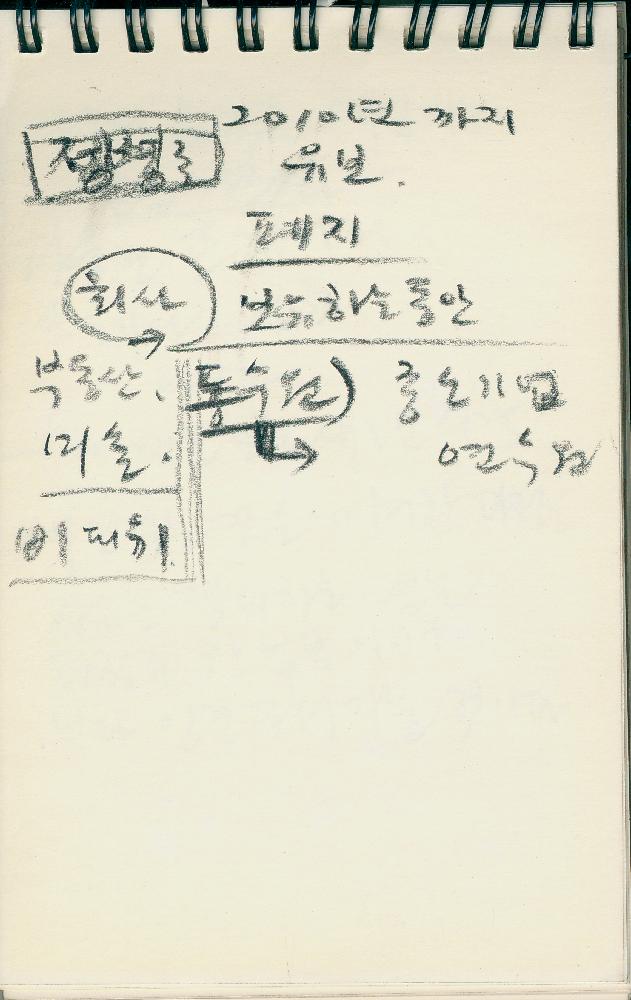 2010년 까지
유보.
폐지
회사
보유하는 동안
부동산.
미술.
비피유
동수원) 중소기업
연수원